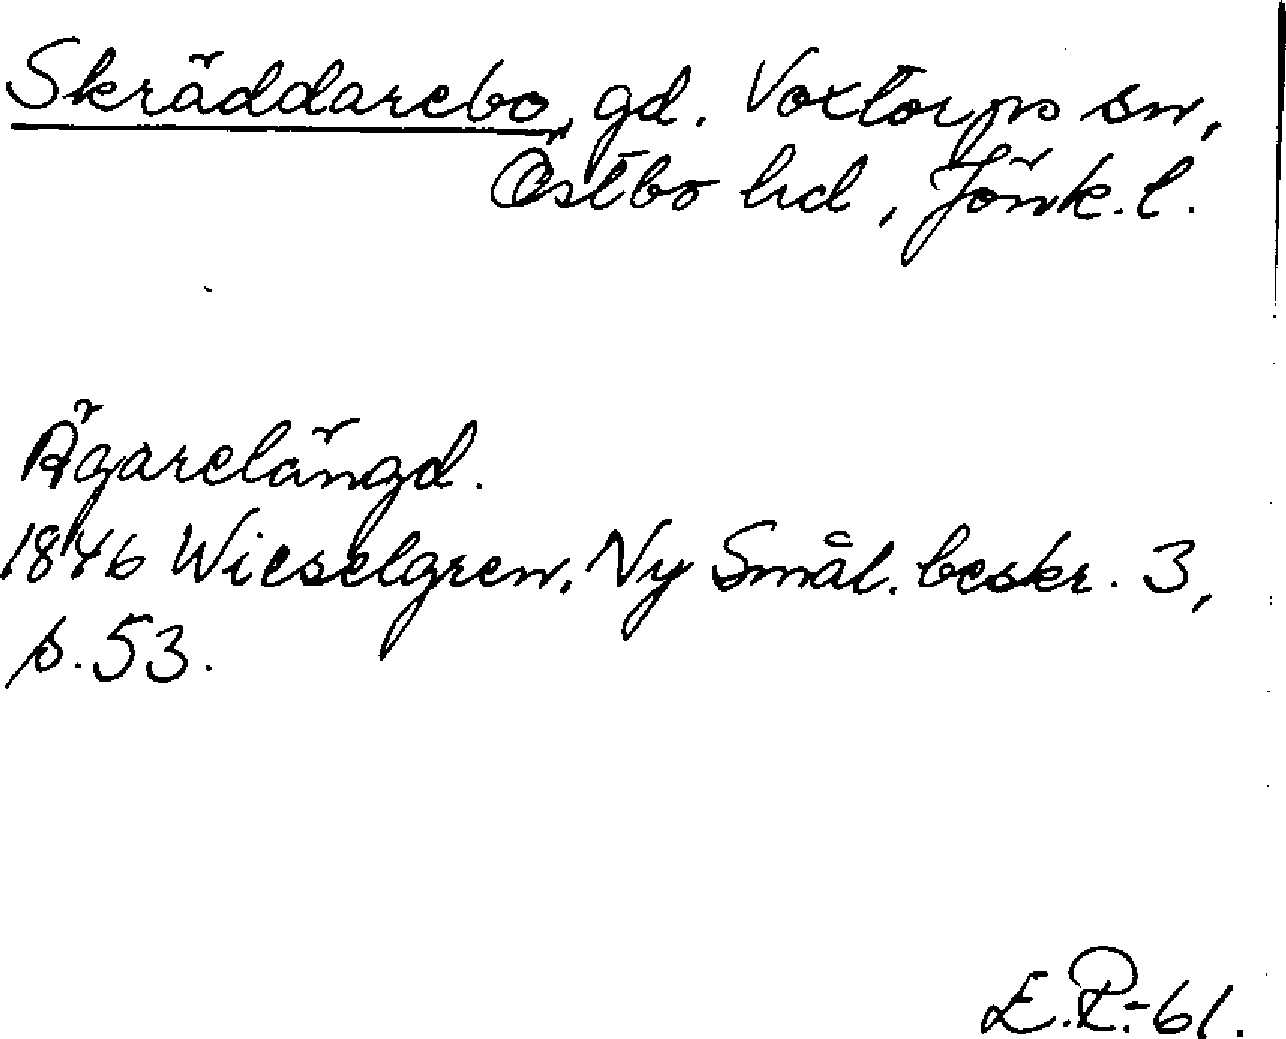 Skräddarebo, gd. Voxtorps sn,
Östbo hd, Jönk. l.
Ägarelängd.
1846 Wieselgren, Ny Smål. beskr. 3,
s. 53.
E.P.-61.